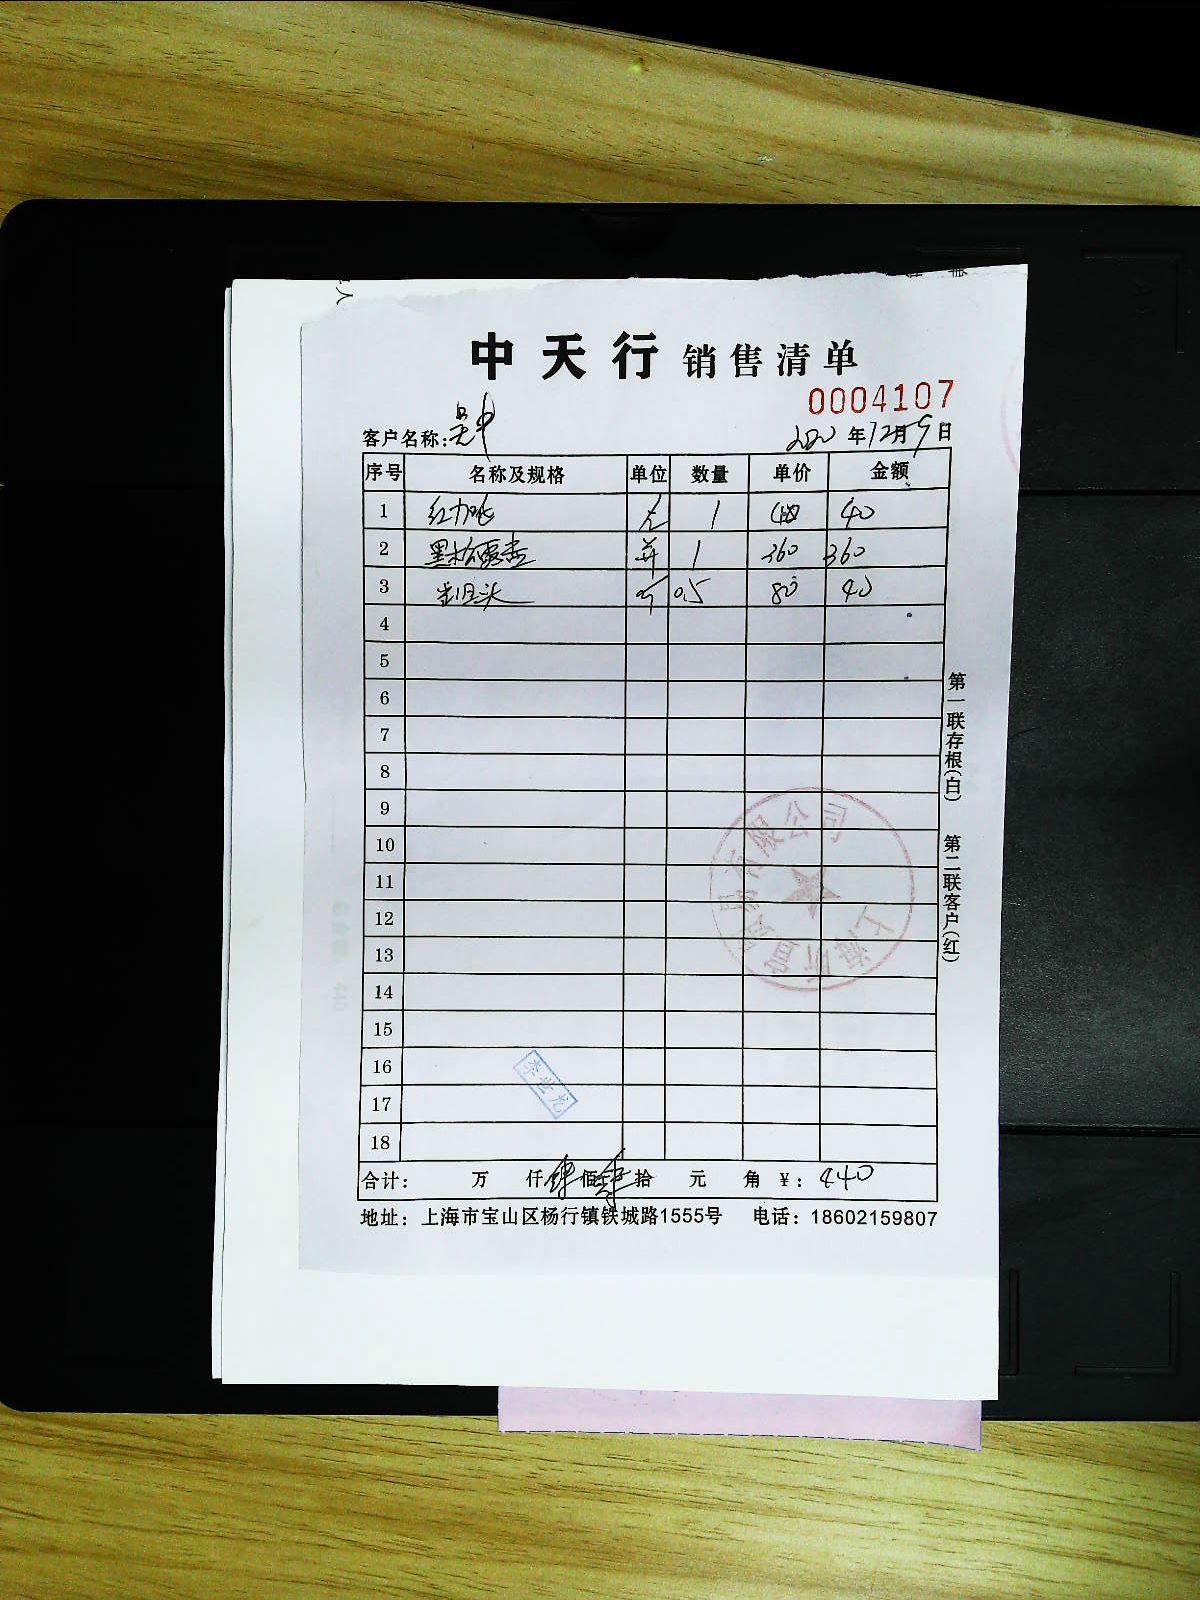 中天行 销售清单
0004107
客户名称: 吴中
2020年12月9日
序号 名称及规格 单位 数量 单价 金额
1 1 40
2 1 360 360
3 0.5 80 40
4
5
6
7
8
9
10
11
12
13
14
15
16
17
18
合计: 万 仟 肆 佰 肆 拾 元 角 ¥: 440
地址: 上海市宝山区杨行镇铁城路1555号 电话: 18602159807
第一联存根(白) 第二联客户(红)
李世龙
有限公司
上海